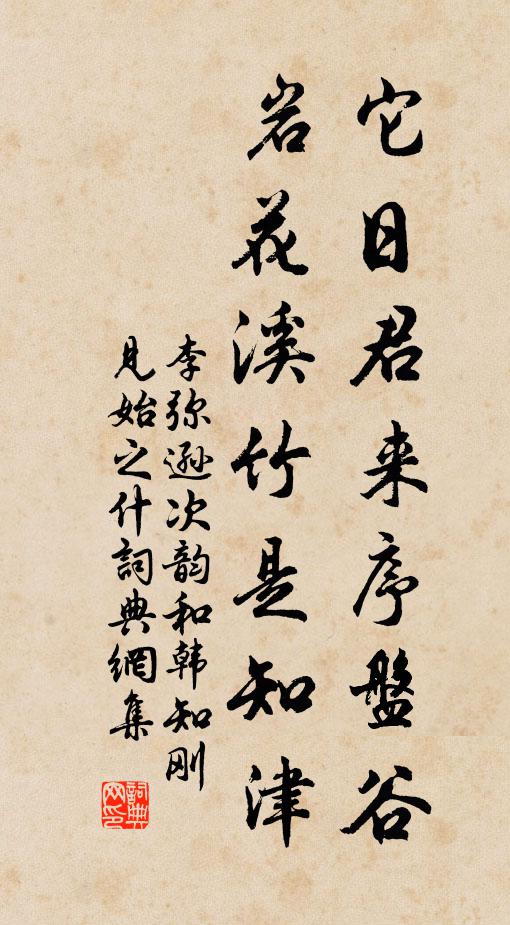 它日君来序盤谷
岩花溪竹是知津
李弥遜次韵和韩知刚
见始之什詞典網集
詞典
网印